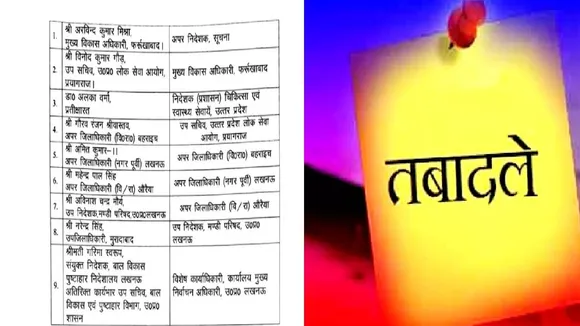 1. श्री अरविन्द कुमार मिश्रा,
मुख्य विकास अधिकारी, फर्रुखाबाद।
अपर निदेशक, सूचना
2. श्री विनोद कुमार गौड़,
उप सचिव, उ0प्र0 लोक सेवा आयोग,
प्रयागराज।
मुख्य विकास अधिकारी, फर्रुखाबाद
3. डा0 अलका वर्मा,
प्रतीक्षारत
निदेशक (प्रशासन) चिकित्सा एवं
स्वास्थ्य सेवायें, उत्तर प्रदेश
4. श्री गौरव रंजन श्रीवास्तव,
अपर जिलाधिकारी (वि0रा0) बहराइच
उप सचिव, उत्तर प्रदेश लोक सेवा
आयोग, प्रयागराज
5. श्री अमित कुमार-।।
अपर जिलाधिकारी (नगर पूर्वी) लखनऊ
अपर जिलाधिकारी (वि0रा0) बहराइच
6. श्री महेन्द्र पाल सिंह
अपर जिलाधिकारी (वि/रा) औरैया
अपर जिलाधिकारी (नगर पूर्वी) लखनऊ
7. श्री अविनाश चन्द्र मौर्य,
उप निदेशक,मण्डी परिषद,उ0प्र0लखनऊ
अपर जिलाधिकारी (वि/रा) औरैया
8. श्री नरेन्द्र सिंह,
उपजिलाधिकारी, मुरादाबाद
उप निदेशक, मण्डी परिषद, उ0प्र0
लखनऊ
9. श्रीमती गरिमा स्वरूप,
संयुक्त निदेशक, बाल विकास
पुष्टाहार निदेशालय लखनऊ
अतिरिक्त कार्यभार उप सचिव, बाल
विकास एवं पुष्टाहार विभाग, उ0प्र0
शासन
विशेष कार्याधिकारी, कार्यालय मुख्य
निर्वाचन अधिकारी, उ0प्र0 लखनऊ
तबादले